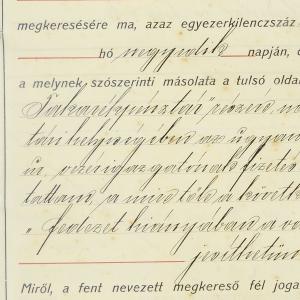 megkeresésére ma, azaz egyezerkilenczszáz
hó negyedik napján, d
a melynek szószerinti másolata a tulsó olda
Takarékpénztár részvé
tári helyiségében az ugyan
úr vezérigazgatónál fizetés
tattam, a mire tőle a követke
„ fedezet hiányában a
jesíthetün
Miről, a fent nevezett megkereső fél joga